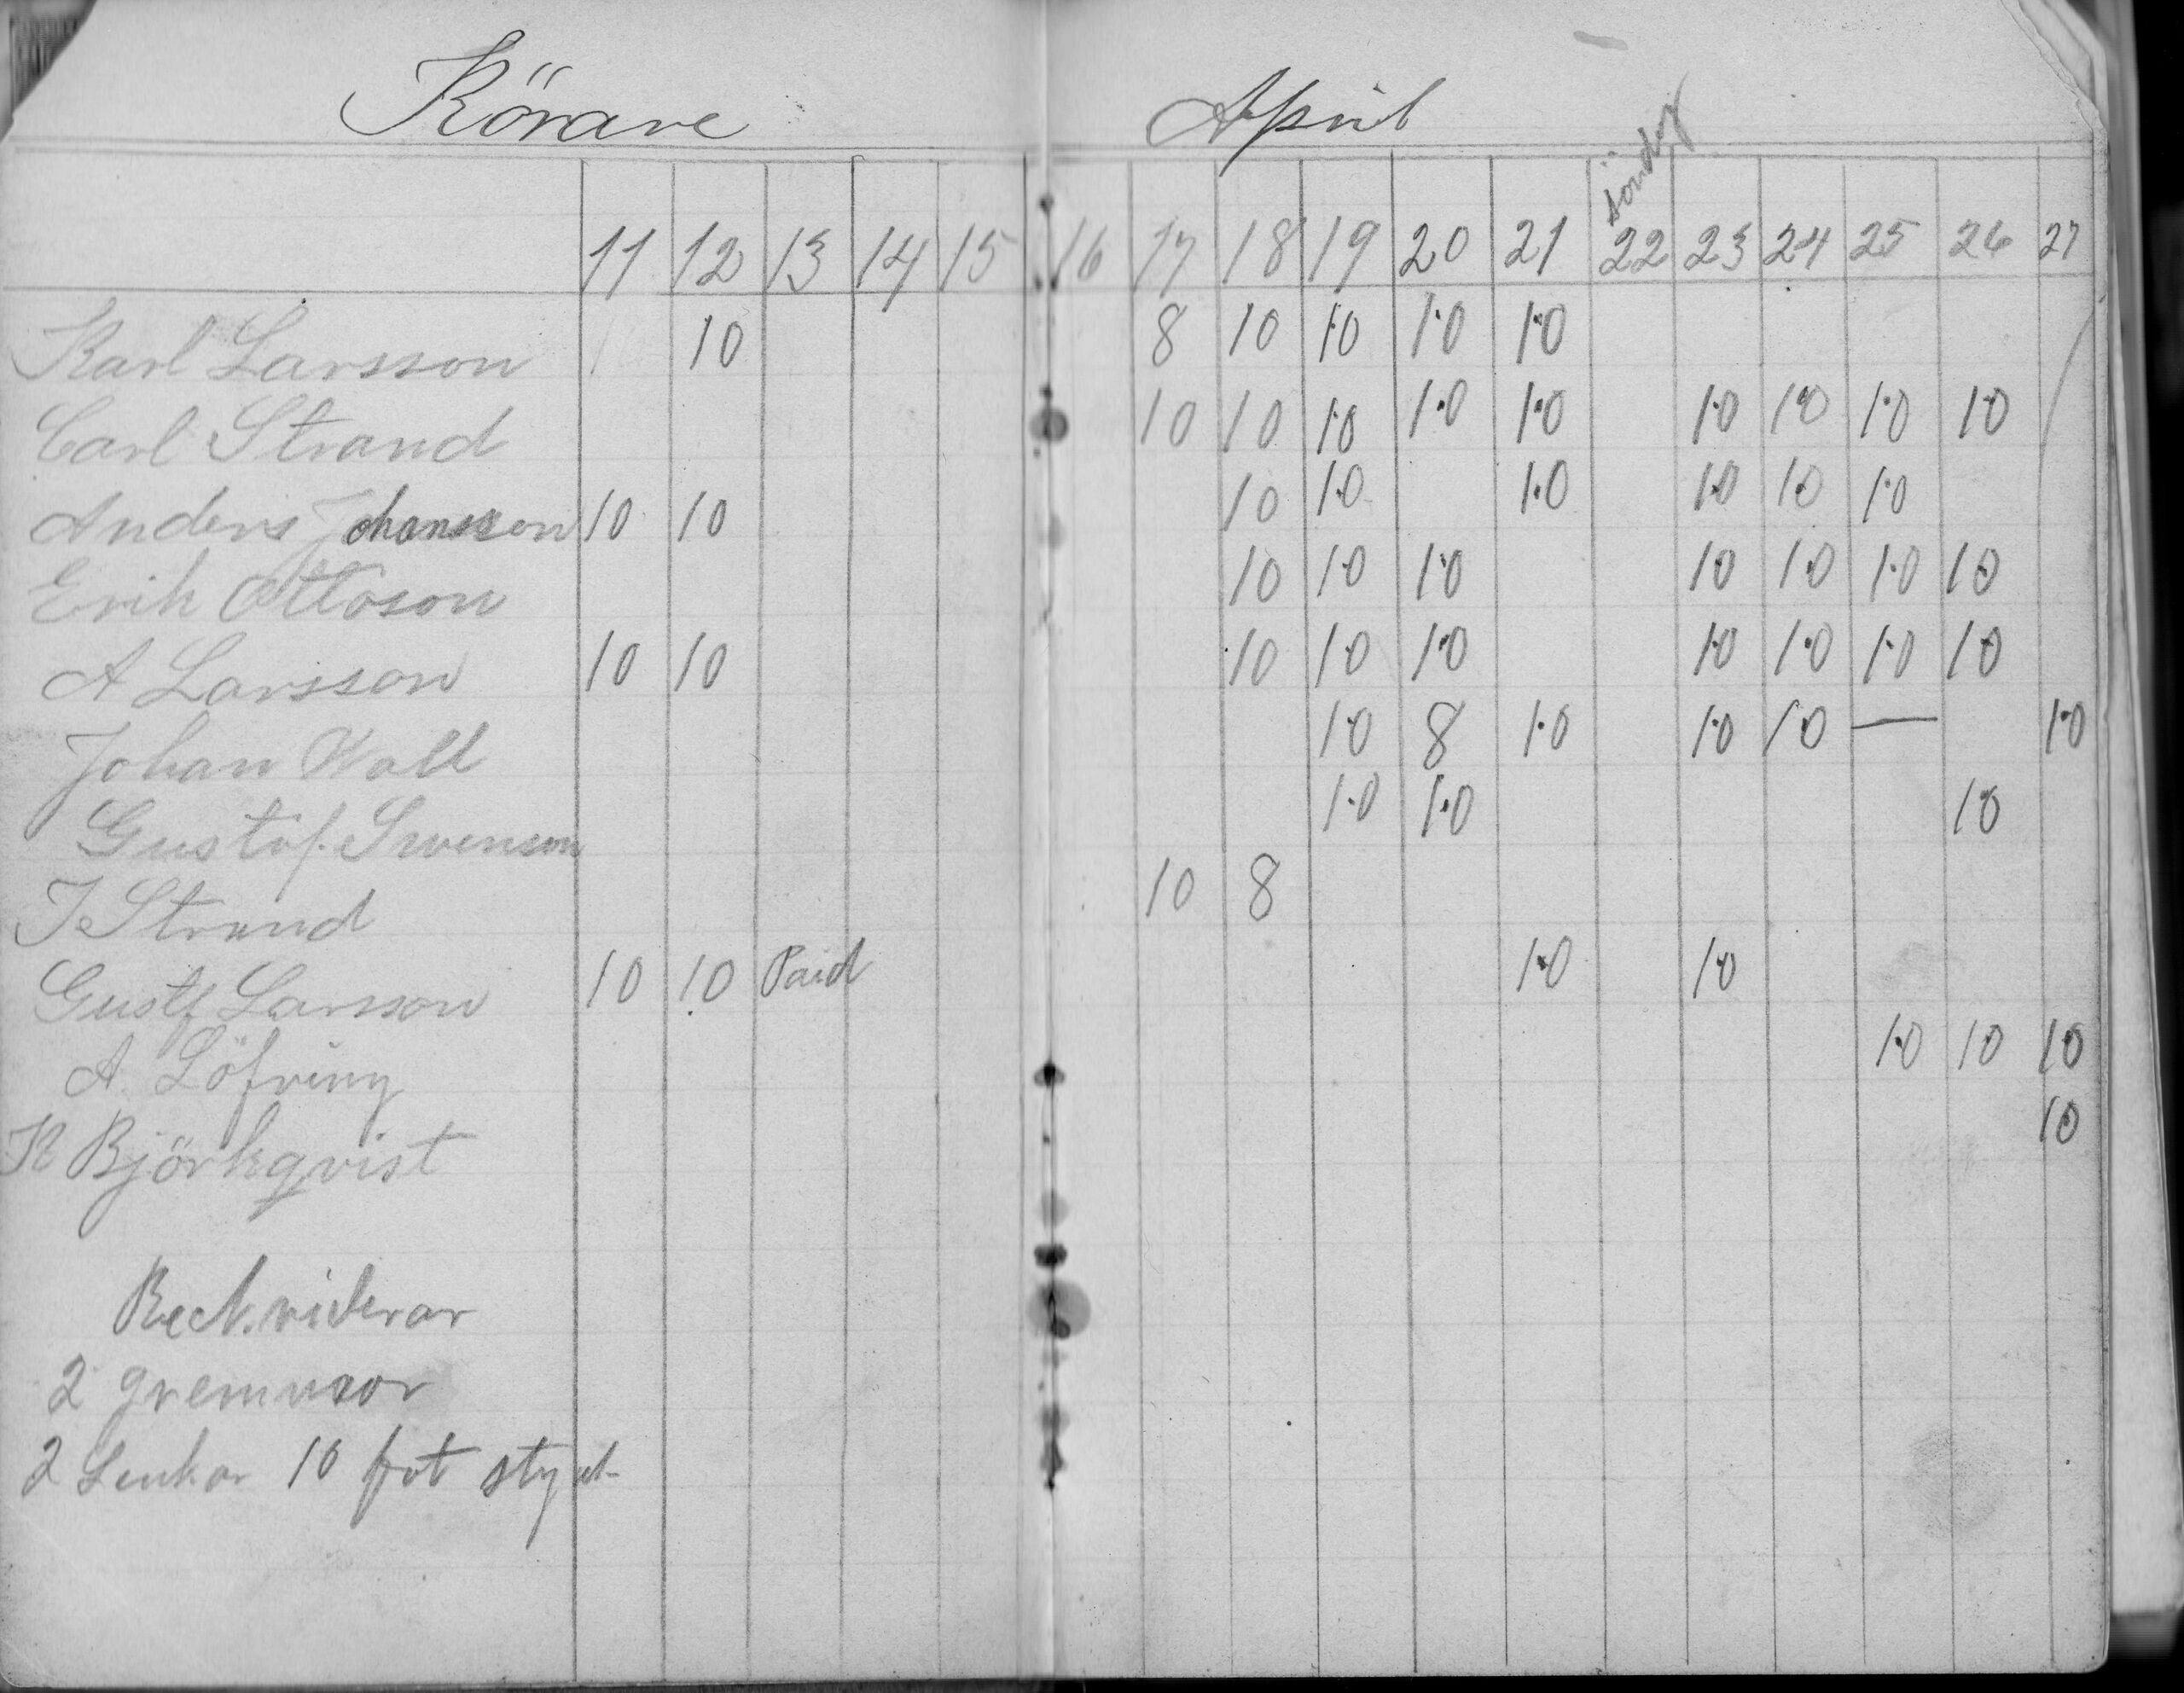 Körare April
söndag
11 12 13 14 15 16 17 18 19 20 21 22 23 24 25 26 27
Karl Larsson 10 8 10 10 10 10
Carl Strand 10 10 10 10 10 10 10 10 10
Anders Johansson 10 10 10 10 10 10 10 10
Erik Ottoson 10 10 10 10 10 10 10
A Larsson 10 10 10 10 10 10 10 10 10
Johan Wall 10 8 10 10 10 — 10
Gustof Swenson 10 10 10
J Strand 10 8
Gustf Larsson 10 10 Paid 10 10
A. Löfving 10 10 10
K Björkqvist 10
2
2 Lenkar 10 fot styck